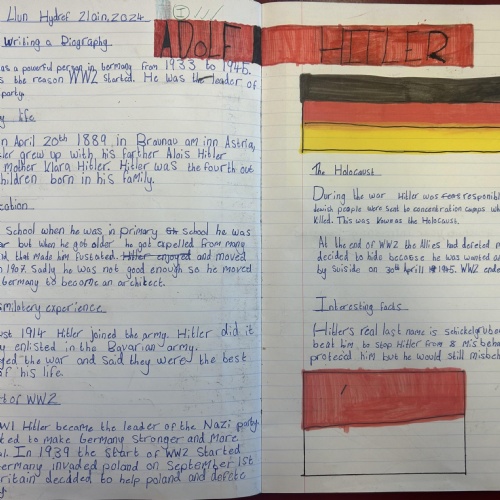 Llun Hydref 21ain, 2024
Writing a Biography
as a powerful person in Germany from 1933 to 1945.
s the reason WW2 started. He was the leader of
party.
y life
n April 20th 1889 in Braunau am inn Astria,
tler grew up with his farther Alois Hitler
mother Klara Hitler. Hitler was the fourth out
children born in his family.
cation
school when he was in primary school he was
but when he got older he got expelled from many
that made him fustated. Hitler enjoyed and moved
n 1907. Sadly he was not good enough so he moved
Germany to become an architect.
milatery experience
ust 1914 Hitler joined the army. Hitler did it
y enlisted in the Bavarian army.
ged the war and said they were the best
of his life.
rt of WW2
WW1 Hitler became the leader of the Nazi party
ted to make Germany stronger and more
al. In 1939 the start of WW2 started
ermany invaded poland on September 1st
ritain decided to help poland and defete
y
ADOLF HITLER
The Holocaust
During the war Hitler was responsib
Jewish people were sent to concentration camps wh
killed. This was known as the Holocaust.
At the end of WW2 the Allies had defeted m
decided to hide because he was wanted a
by suiside on 30th Aprill 1945. WW2 ende
Interesting facts
Hitlers real last name is schickelgruber
beat him to stop Hitler from misbeha
protecd him but he would still misbeh